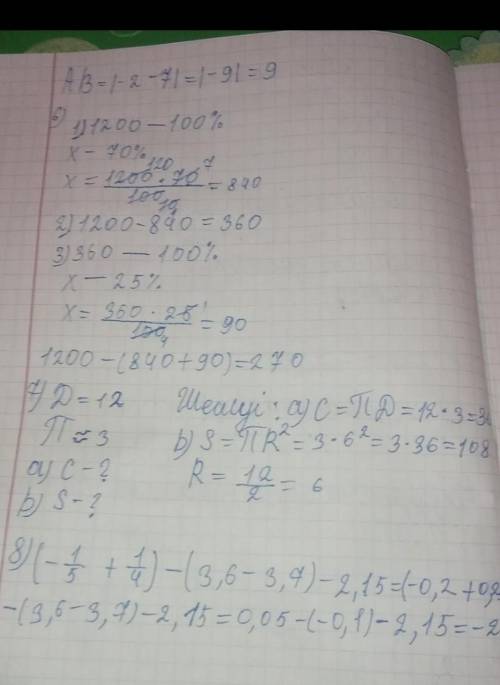 AB=|-2-7|=|-9|=9
6) 1) 1200 — 100%
x — 70%
x = 1200 · 70 / 100 = 840
120 7
10
2) 1200-840=360
3) 360 — 100%
x — 25%
x = 360 · 25 / 100 = 90
1
4
1200-(840+90)=270
7) D=12 Шешуі: a) C=ПD=12·3=3
П≈3 b) S=ПR²=3·6²=3·36=108
a) C-? R = 12/2 = 6
b) S-?
8) (-1/5 + 1/4) - (3,6-3,7) - 2,15 = (-0,2+0,2
-(3,6-3,7)-2,15=0,05-(-0,1)-2,15=-2